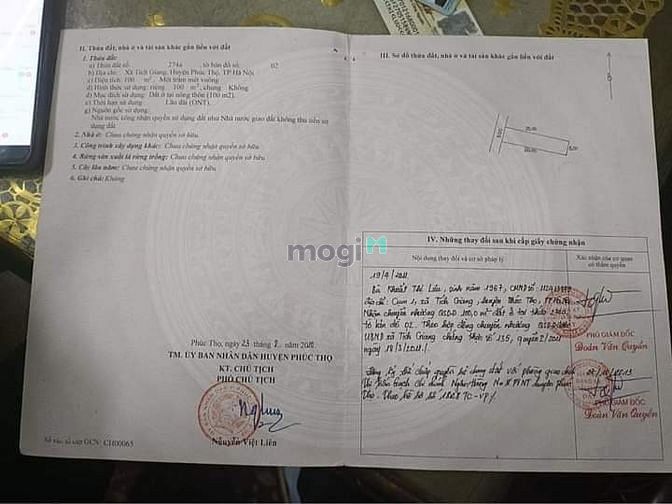 II. Thửa đất, nhà ở và tài sản khác gắn liền với đất
1. Thửa đất:
a) Thửa đất số: 274a , tờ bản đồ số: 02
b) Địa chỉ: Xã Tích Giang, Huyện Phúc Thọ, TP Hà Nội
c) Diện tích: 100 m², Một trăm mét vuông
d) Hình thức sử dụng: riêng 100 m², chung Không
đ) Mục đích sử dụng: Đất ở tại nông thôn (100 m2).
e) Thời hạn sử dụng: Lâu dài (ONT).
g) Nguồn gốc sử dụng:
Nhà nước công nhận quyền sử dụng đất như Nhà nước giao đất không thu tiền sử
dụng đất
2. Nhà ở: Chưa chứng nhận quyền sở hữu.
3. Công trình xây dựng khác: Chưa chứng nhận quyền sở hữu.
4. Rừng sản xuất là rừng trồng: Chưa chứng nhận quyền sở hữu.
5. Cây lâu năm: Chưa chứng nhận quyền sở hữu.
6. Ghi chú: Không
Phúc Thọ, ngày 23 tháng năm
TM. ỦY BAN NHÂN DÂN HUYỆN PHÚC THỌ
KT. CHỦ TỊCH
PHÓ CHỦ TỊCH
Nguyễn Việt Liên
Số vào sổ cấp GCN: CH00065
III. Sơ đồ thửa đất, nhà ở và tài sản khác gắn liền với đất
5.00
20.00
20.00
5.00
mogi
IV. Những thay đổi sau khi cấp giấy chứng nhận
Nội dung thay đổi và cơ sở pháp lý
Xác nhận của cơ quan
có thẩm quyền
19/4/2011
Bà Khuất Thị , sinh năm 1967, CMND số
địa chỉ: Cụm 1, xã Tích Giang, huyện Phúc Thọ, TP Hà Nội
Nhận chuyển nhượng QSDĐ 100,0 m² đất ở tại thửa
tờ bản đồ 02. Theo hợp đồng chuyển nhượng QSDĐ
UBND xã Tích Giang chứng thực số 135, quyển
ngày 18/3/2011.
PHÓ GIÁM ĐỐC
Đoàn Văn Quyền
Đăng ký thế chấp quyền sử dụng đất với phòng giao dịch
chi nhánh Ngân hàng No & PTNT huyện Phúc
Thọ. Theo hồ sơ số TC-VP
PHÓ GIÁM ĐỐC
Đoàn Văn Quyền